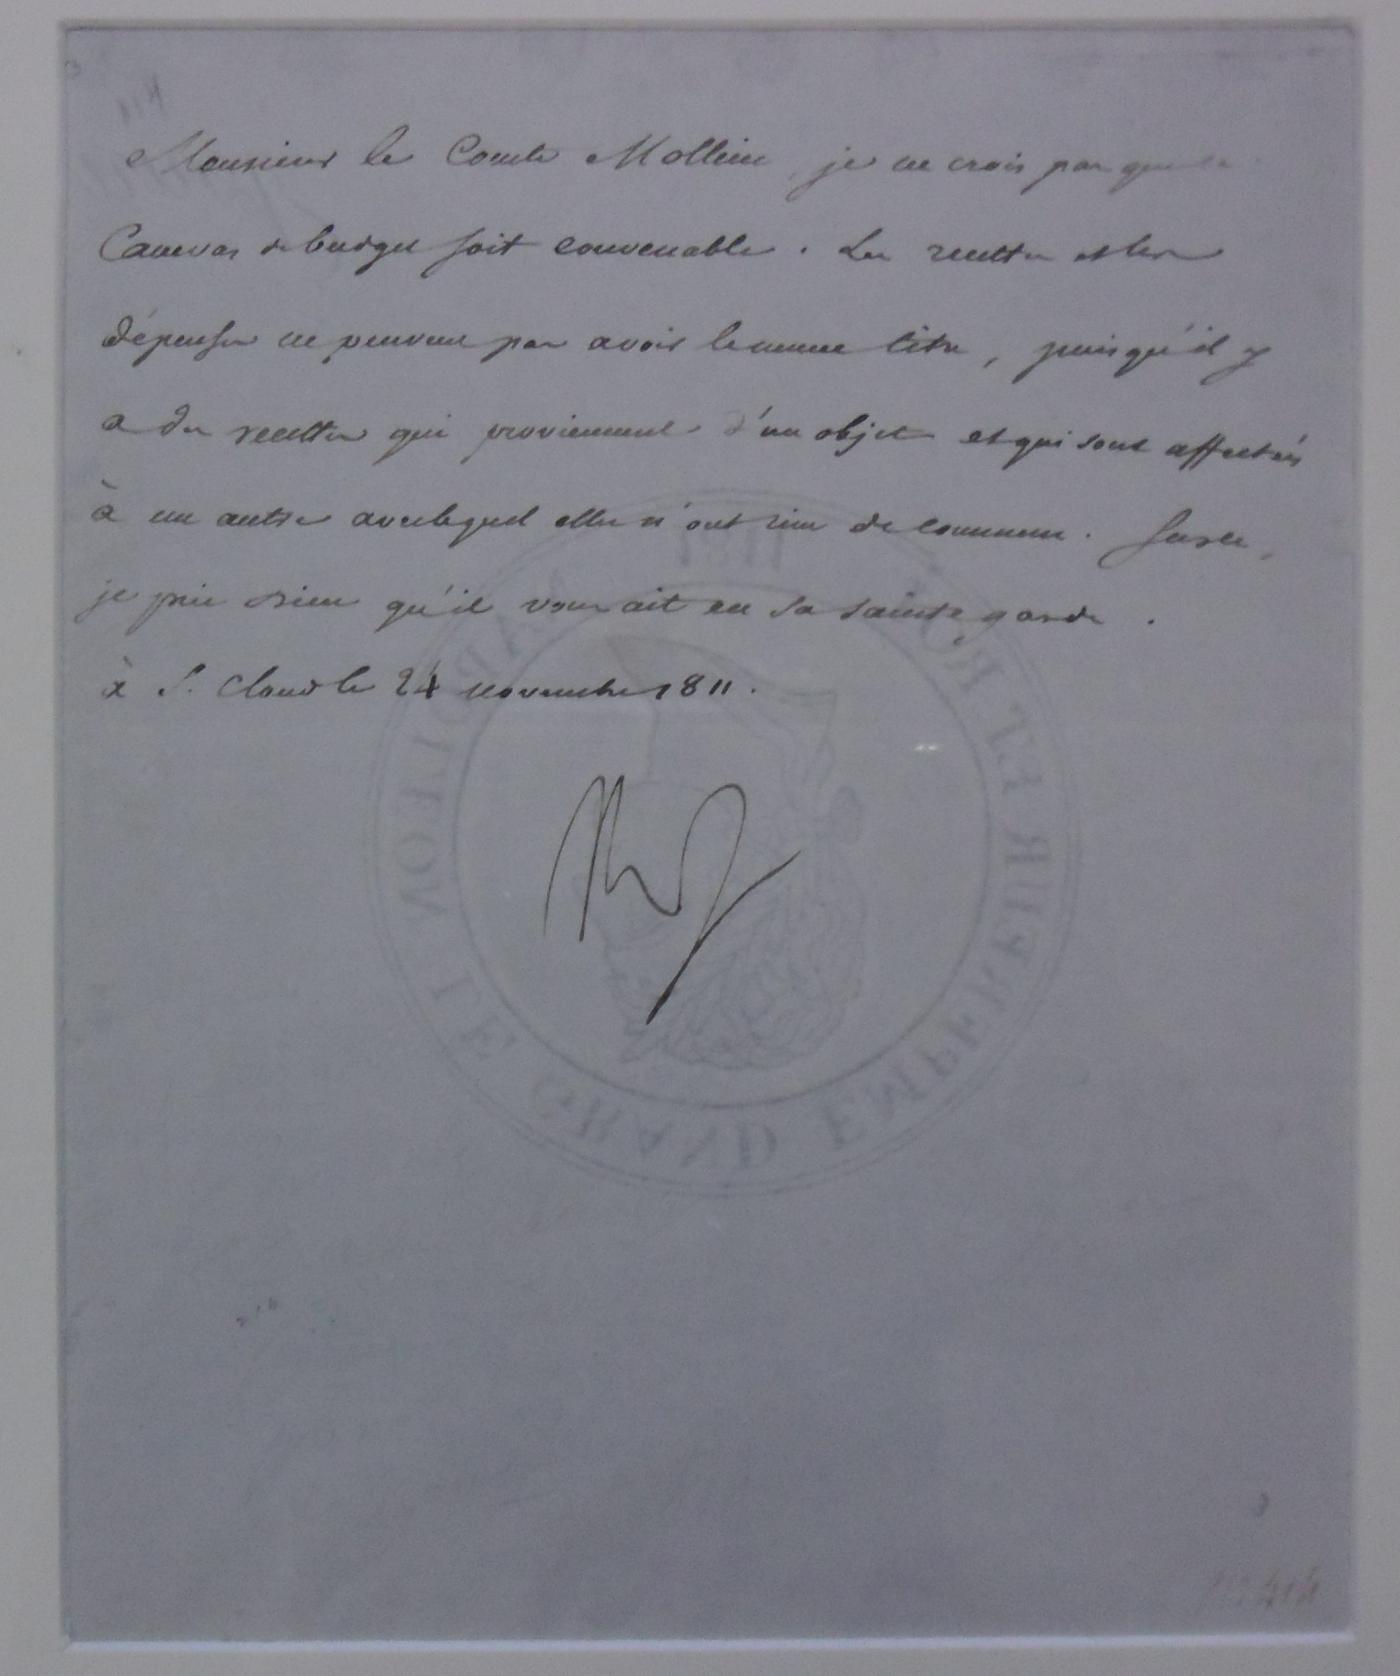 Monsieur le Comte Mollien, je ne crois pas que ce
Canevas de budget soit convenable. Les recettes et les
dépenses ne peuvent pas avoir le même titre, puisqu'il y
a des recettes qui proviennent d'un objet et qui sont affectées
à un autre avec lequel elles n'ont rien de commun. Sur ce,
je prie Dieu qu'il vous ait en sa sainte garde.
à St. Cloud le 24 novembre 1811.
Np
NAPOLEON LE GRAND EMPEREUR ET ROI